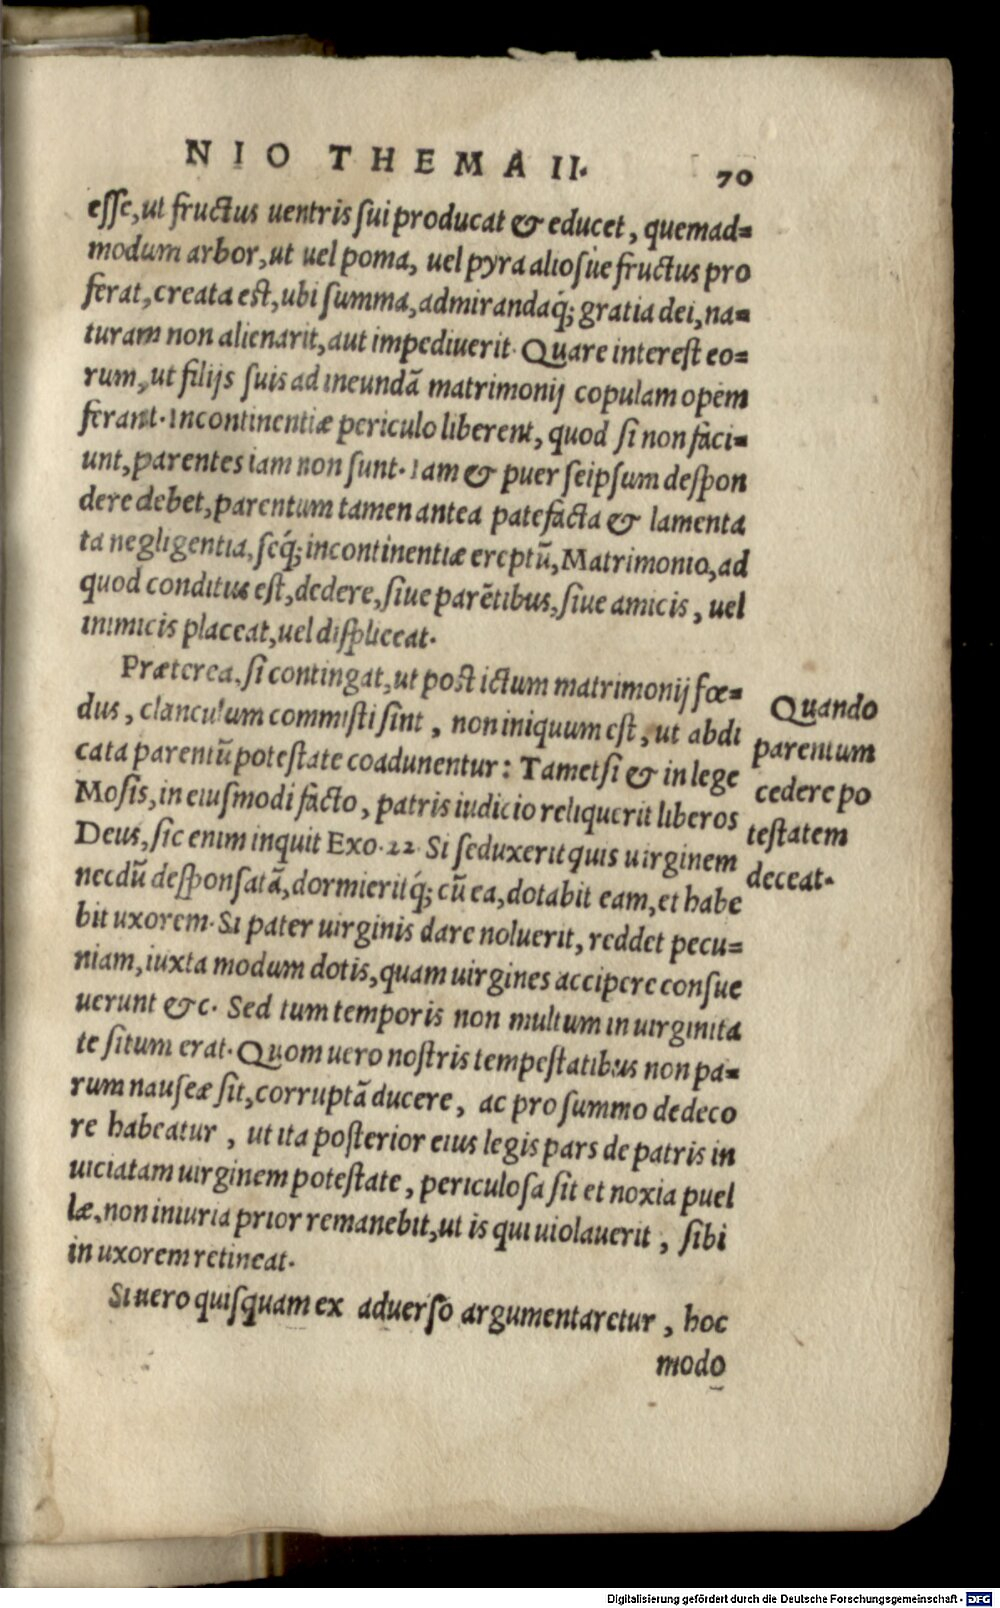 NIO THEMA II. 70
esse, ut fructus uentris sui producat & educet, quemad=
modum arbor, ut uel poma, uel pyra aliosue fructus pro
ferat, creata est, ubi summa, admirandaq́; gratia dei, na=
turam non alienarit, aut impediuerit. Quare interest eo=
rum, ut filijs suis ad ineundã matrimonij copulam opem
ferant. Incontinentiæ periculo liberent, quod si non faci=
unt, parentes iam non sunt. Iam & puer seipsum despon
dere debet, parentum tamen antea patefacta & lamenta
ta negligentia, seq́; incontinentiæ ereptũ, Matrimonio, ad
quod conditus est, dedere, siue parẽtibus, siue amicis, uel
inimicis placeat, uel displiceat.
Præterea, si contingat, ut post ictum matrimonij fœ=
dus, clanculum commisti sint, non iniquum est, ut abdi
cata parentũ potestate coadunentur: Tametsi & in lege
Mosis, in eiusmodi facto, patris iudicio reliquerit liberos
Deus, sic enim inquit Exo. 22. Si seduxerit quis uirginem
necdũ desponsatã, dormieritq́; cũ ea, dotabit eam, et habe
bit uxorem. Si pater uirginis dare noluerit, reddet pecu=
niam, iuxta modum dotis, quam uirgines accipere consue
uerunt &c. Sed tum temporis non multum in uirginita
te situm erat. Quom uero nostris tempestatibus non pa=
rum nauseæ sit, corruptã ducere, ac pro summo dedeco
re habeatur, ut ita posterior eius legis pars de patris in
uiciatam uirginem potestate, periculosa sit et noxia puel
læ, non iniuria prior remanebit, ut is qui uiolauerit, sibi
in uxorem retineat.
Si uero quisquam ex aduerso argumentaretur, hoc
modo
Quando
parentum
cedere po
testatem
deceat.
Digitalisierung gefördert durch die Deutsche Forschungsgemeinschaft - DFG